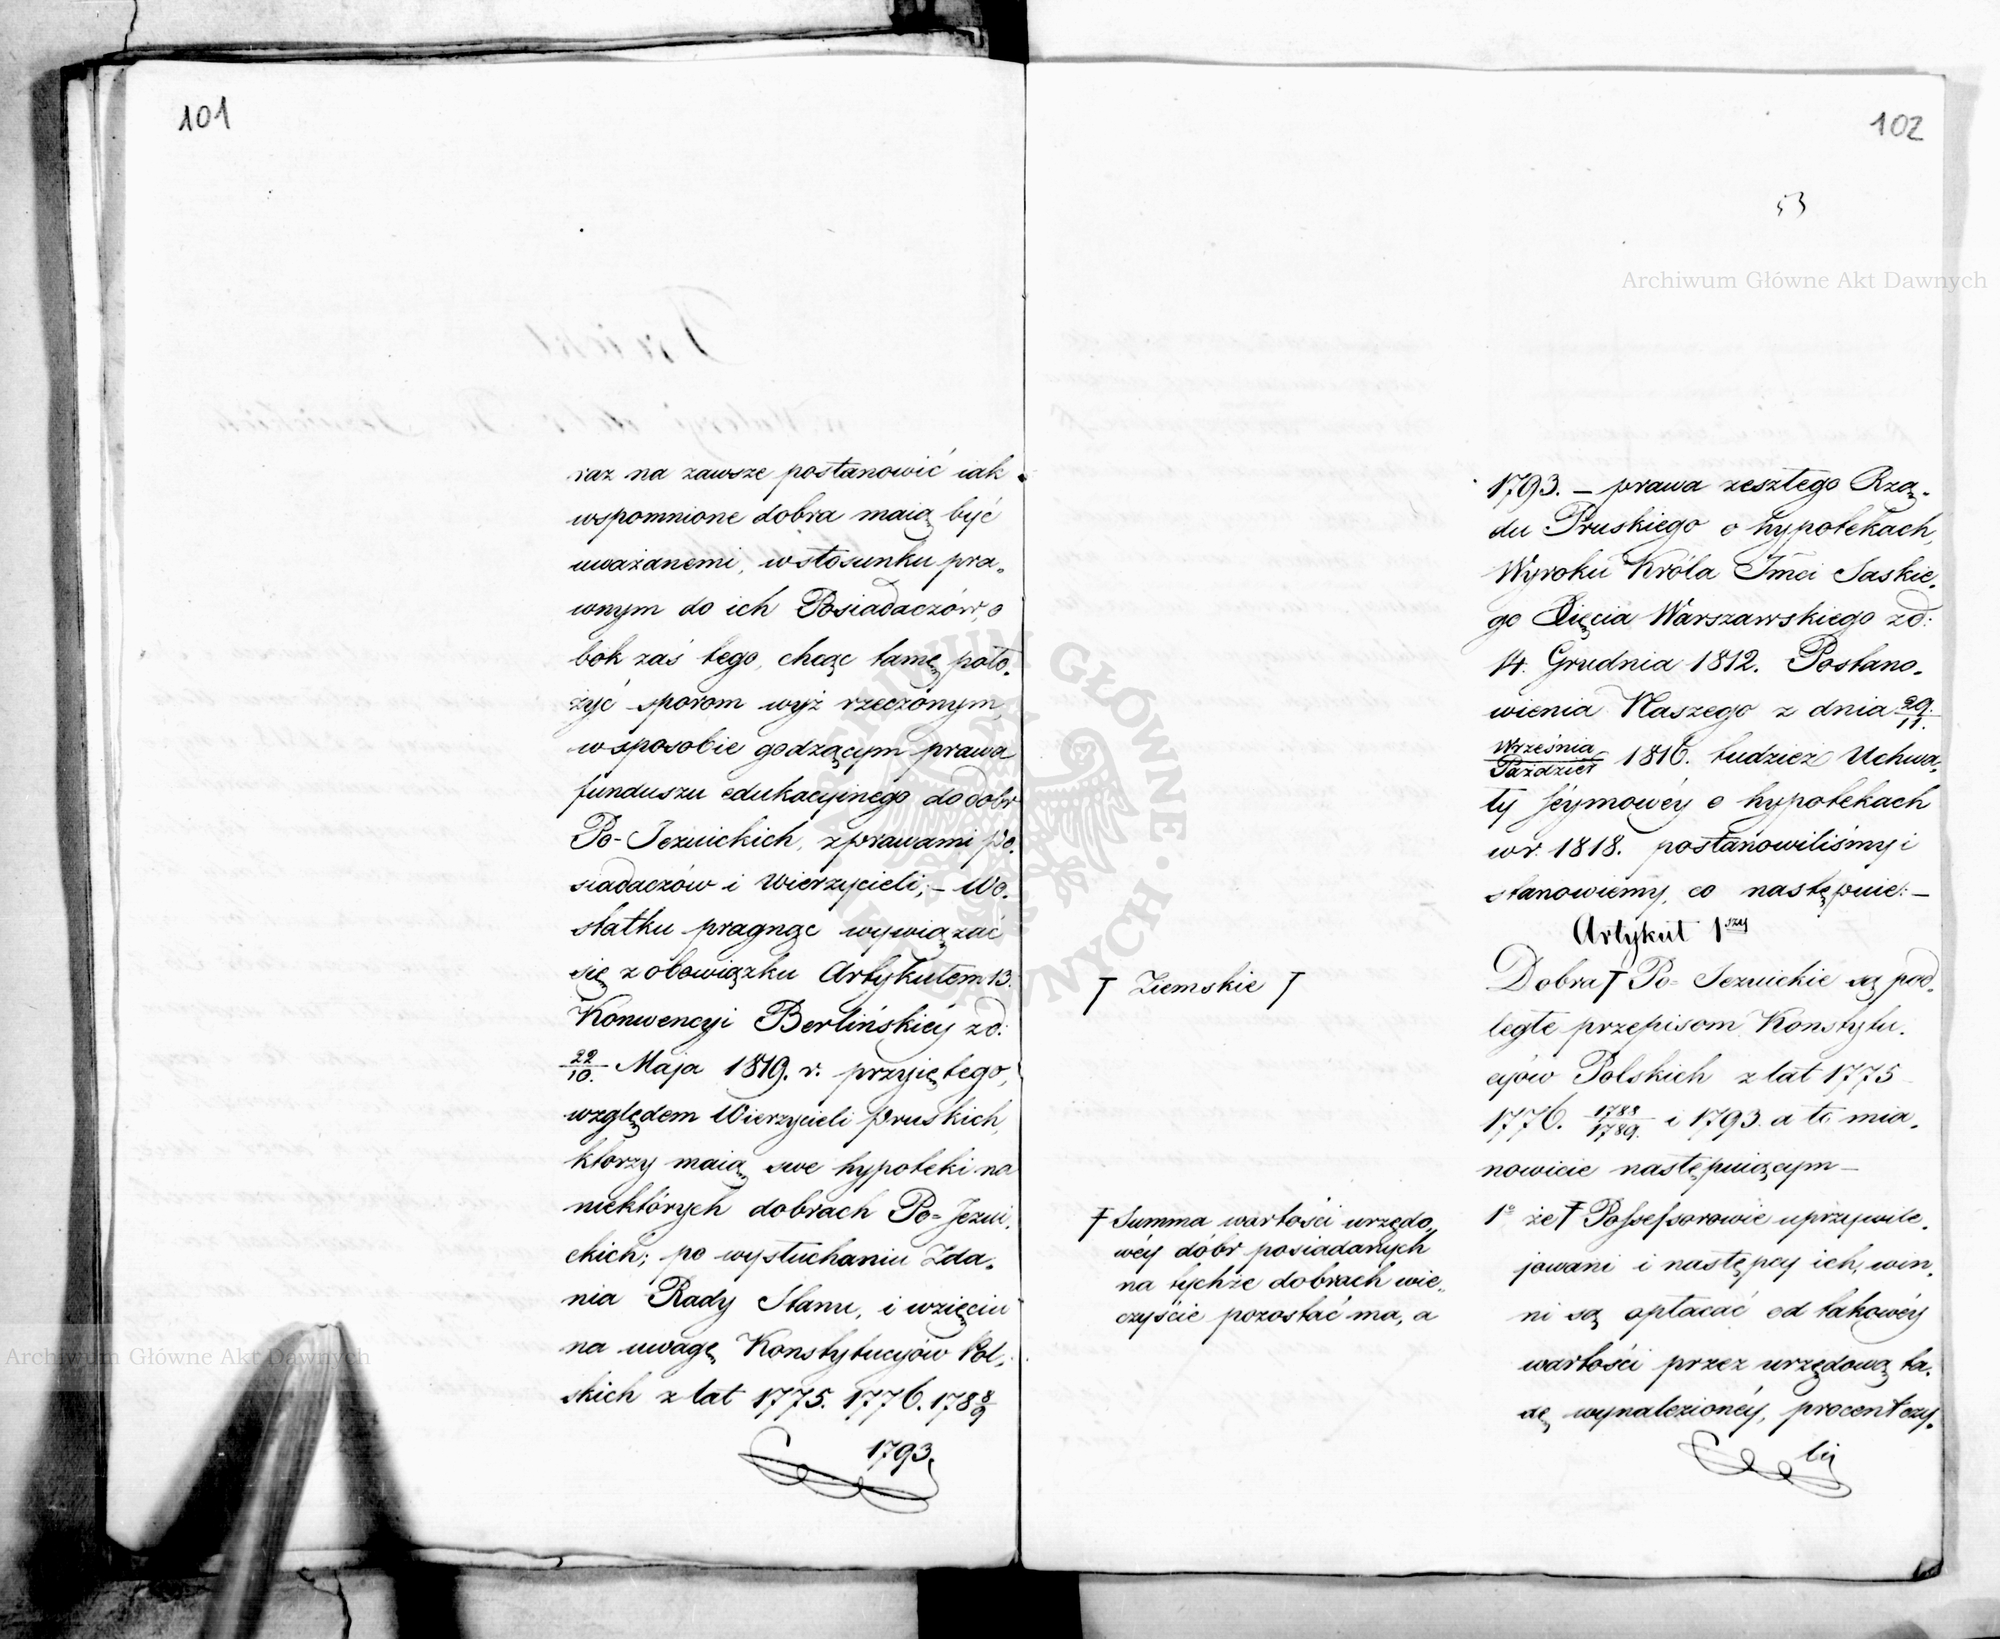 101
raz na zawsze postanowić iak
wspomnione dobra maią być
uważanemi, w stosunku pra„
wnym do ich Posiadaczów, o
bok zaś tego, chcąc tamę poło„
żyć sporom wyż rzeczonym,
w sposobie godzącym prawa
funduszu edukacyinego do dobr
Po-Jezuickich, z prawami po„
siadaczów i Wierzycieli; – Wo„
statku pragnąc wywiązać
się z obowiązku Artykułem 13.
Konwencyi Berlińskiey z d:
22/10. Maja 1819. r. przyiętego,
względem Wierzycieli Pruskich,
ktorzy maią swe hypoteki na
niektórych dobrach Po=Jezui„
ckich; po wysłuchaniu Zda„
nia Rady Stanu, i wzięciu
na uwagę Konstytucyów Pol„
skich z lat 1775. 1776. 178 8/9
1793.
102
53
1793. – prawa zeszłego Rzą„
du Pruskiego o hypotekach,
Wyroku Króla Jmci Saskie„
go Xięcia Warszawskiego z d:
14. Grudnia 1812. Postano„
wienia Naszego z dnia 29./11.
Września/Paździer 1816. tudzież Uchwa„
ły Seymowéy o hypotekach
w r. 1818. postanowiliśmy i
stanowiemy, co następuie: –
Artykuł 1szy
Dobra † Po=Jezuickie są pod„
ległe przepisom Konstytu„
cyów Polskich z lat 1775
1776. 1788/1789. i 1793. a to mia„
nowicie następuiącym –
1° że † Possessorowie uprzywile„
jowani i następcy ich, win„
ni są opłacać od takowéy
wartości przez urzędową ta„
xę wynalezionéy, procent czy„
ły
† Ziemskie †
† Summa wartości urzędo„
wéy dóbr posiadanych
na tychże dobrach wie„
czyście pozostać ma, a
Archiwum Główne Akt Dawnych
Archiwum Główne Akt Dawnych